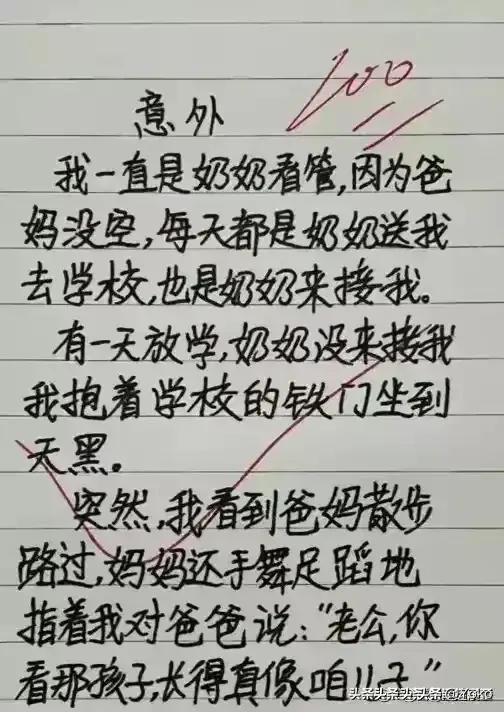 100
意外
我一直是奶奶看管,因为爸
妈没空,每天都是奶奶送我
去学校,也是奶奶来接我。
有一天放学,奶奶没来接我
我抱着学校的铁门坐到
天黑。
突然,我看到爸妈散步
路过,妈妈还手舞足蹈地
指着我对爸爸说:“老公,你
看那孩子,长得真像咱儿子”